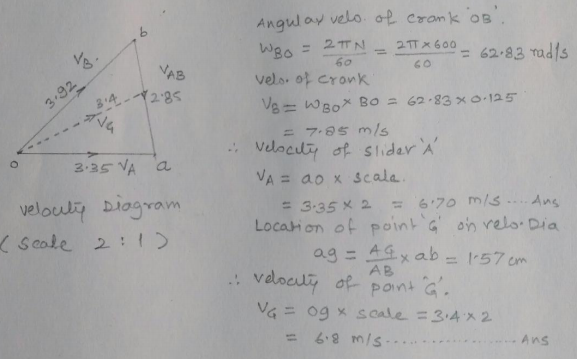 b
V_B.
3.92
V_AB
3.4
V_G
2.85
o
3.35 V_A
a
velocity Diagram
(scale 2:1)
Angular velo. of crank 'OB'.
W_BO = 2πN/60 = 2π×600/60 = 62.83 rad/s
velo. of crank
V_B = W_BO × BO = 62.83 × 0.125
= 7.85 m/s
∴ velocity of slider 'A'
V_A = ao × scale.
= 3.35 × 2 = 6.70 m/s .... Ans
Location of point 'G' on velo. Dia
ag = AG/AB × ab = 1.57 cm
∴ velocity of point 'G'.
V_G = og × scale = 3.4 × 2
= 6.8 m/s .................. Ans